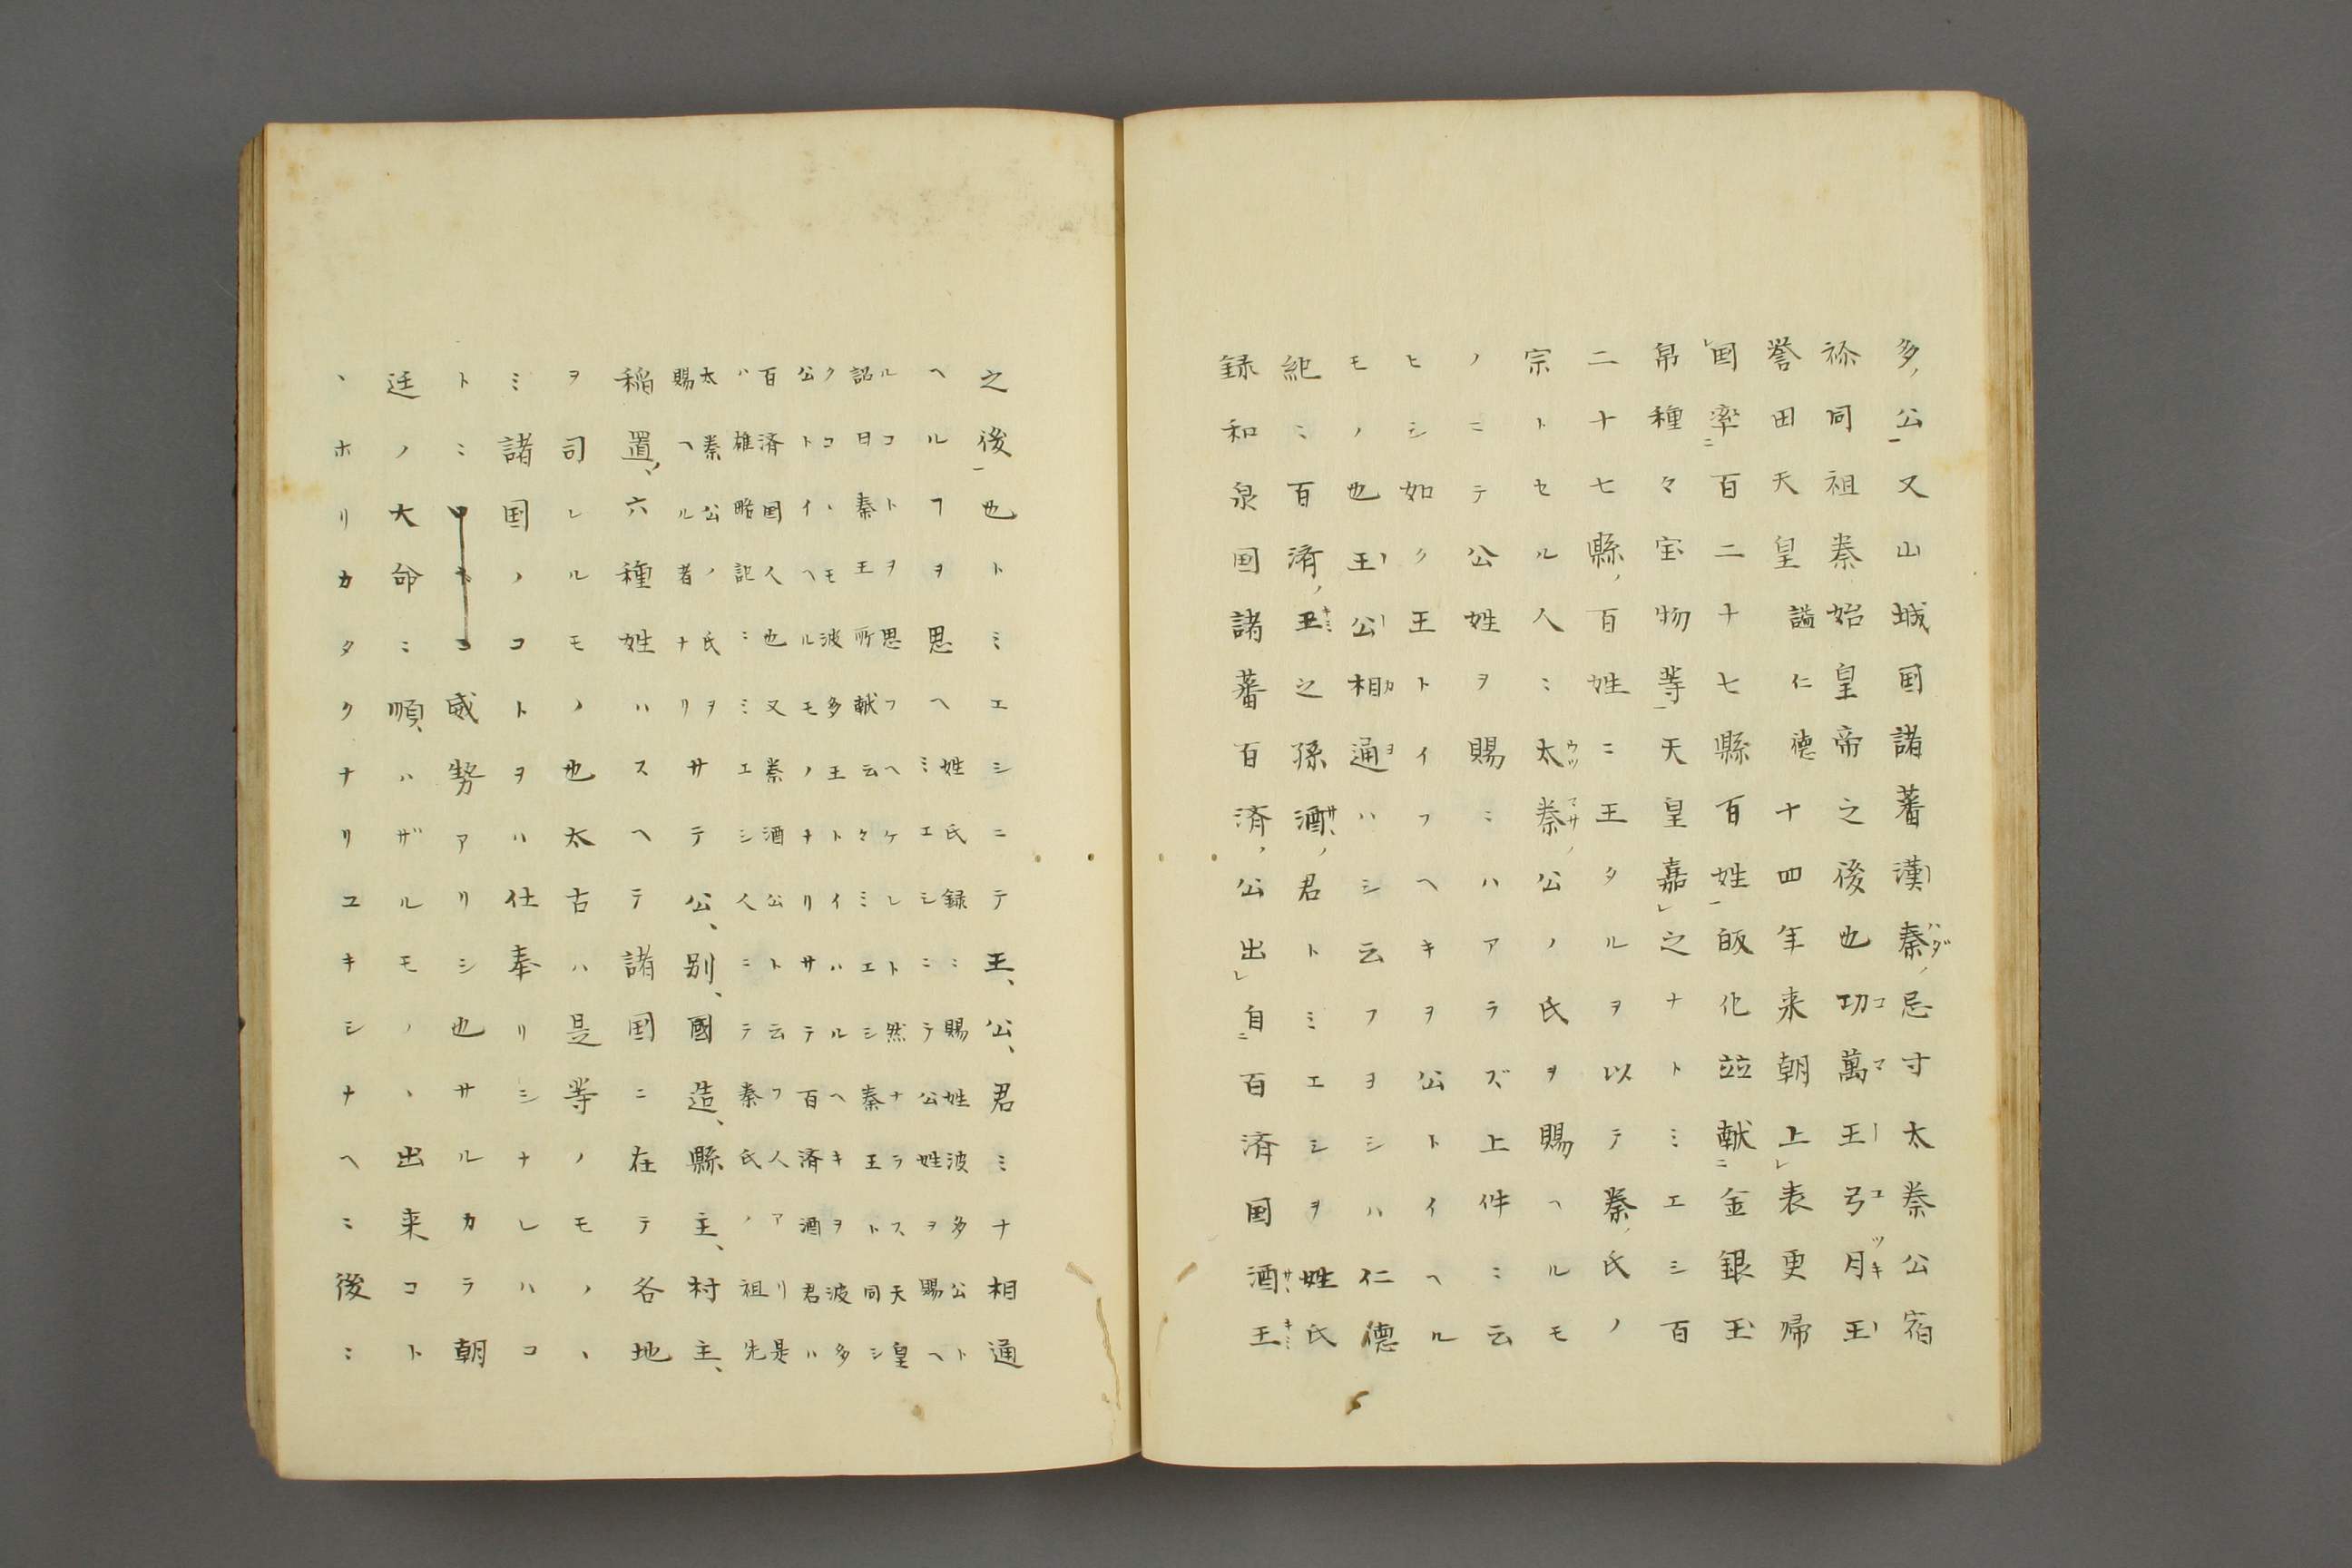 多公又山城国諸蕃漢秦忌寸太秦公宿
祢同祖秦始皇帝之後也功萬王弓月王
誉田天皇謚仁徳十四年来朝上表更帰
国率百二十七縣百姓皈化並献金銀玉
帛種々宝物等天皇嘉之ナトミエシ百
二十七縣百姓ニ王タルヲ以テ秦氏ノ
宗トセル人ミ太秦公ノ氏ヲ賜ヘルモ
ノニテ公姓ヲ賜ミハアラズ上件ミ云
ヒシ如ク王トイフヘキヲ公トイヘル
モノ也王公相通ハシ云フヲヨシハ仁徳
紀ミ百済王之孫酒君トミエシヲ姓氏
録和泉国諸蕃百済公出自百済国酒王
之後也トミエシニテ王、公、君ミナ相通
ヘルフヲ思ヘ
姓氏録ミ賜姓波多公ト
ミエシニテ公姓ヲ賜ヘ
ルコト思フヘケレト然ナラス天皇
詔曰秦王所献云々ミエシ秦王ト同シ
クコヽモ波多王トイハルヘキヲ波多
公トイヘルモノナリサテ百済酒君ハ
百済国人也又秦酒公ト云フ人アリ是
ハ雄略記ミミエシ人ニテ秦氏ノ祖先
太秦公ノ氏ヲ
賜ヘル者ナリ
サテ公、別、國造、縣主、村主、
稲置、六種姓ハスヘテ諸国ニ在テ各地
ヲ司レルモノ也太古ハ是等ノモノヽ
ミ諸国ノコトヲハ仕奉リシナレハコ
トミ威勢アリシ也サルカラ朝
廷ノ大命ミ順ハザルモノヽ出来コト
ヽホリカタクナリユキシナヘミ後ミ